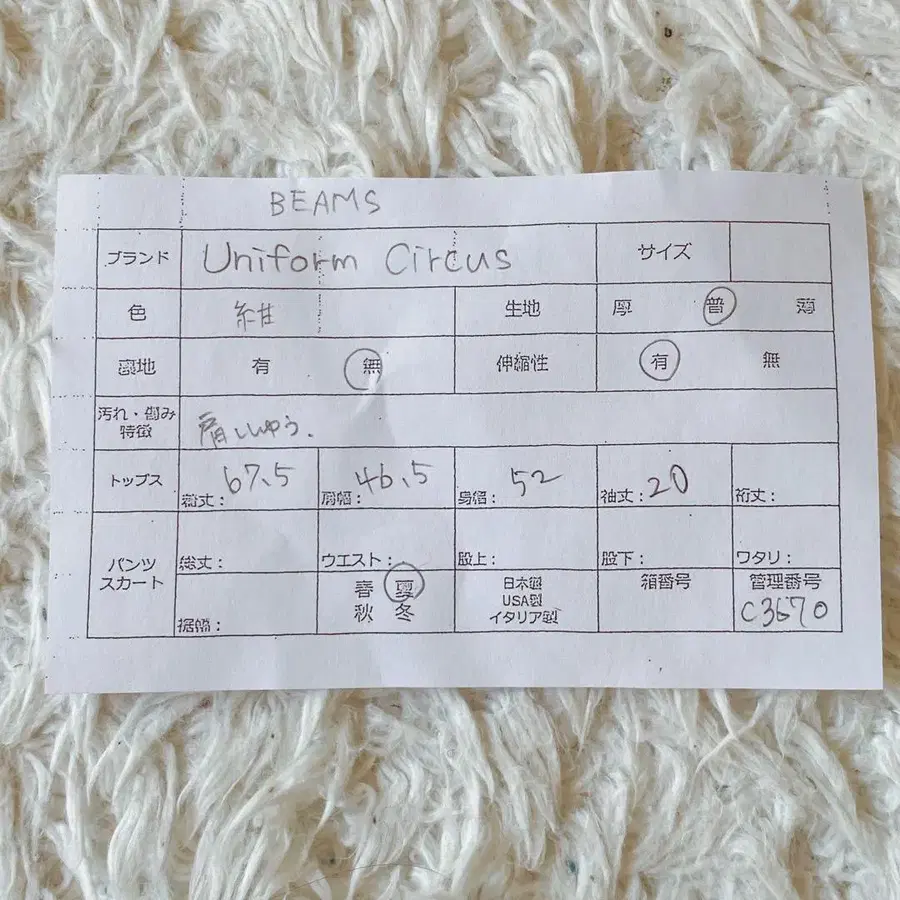 BEAMS
ブランド Uniform Circus サイズ
色 維 生地 厚 普 薄
裏地 有 無 伸縮性 有 無
汚れ・傷み
特徴 肩ししゅう.
トップス 着丈: 67.5 肩幅: 46.5 身幅: 52 袖丈: 20 裄丈:
パンツ
スカート 総丈: ウエスト: 股上: 股下: ワタリ:
裾幅: 春 夏
秋 冬 日本製
USA製
イタリア製 箱番号 管理番号
C3670